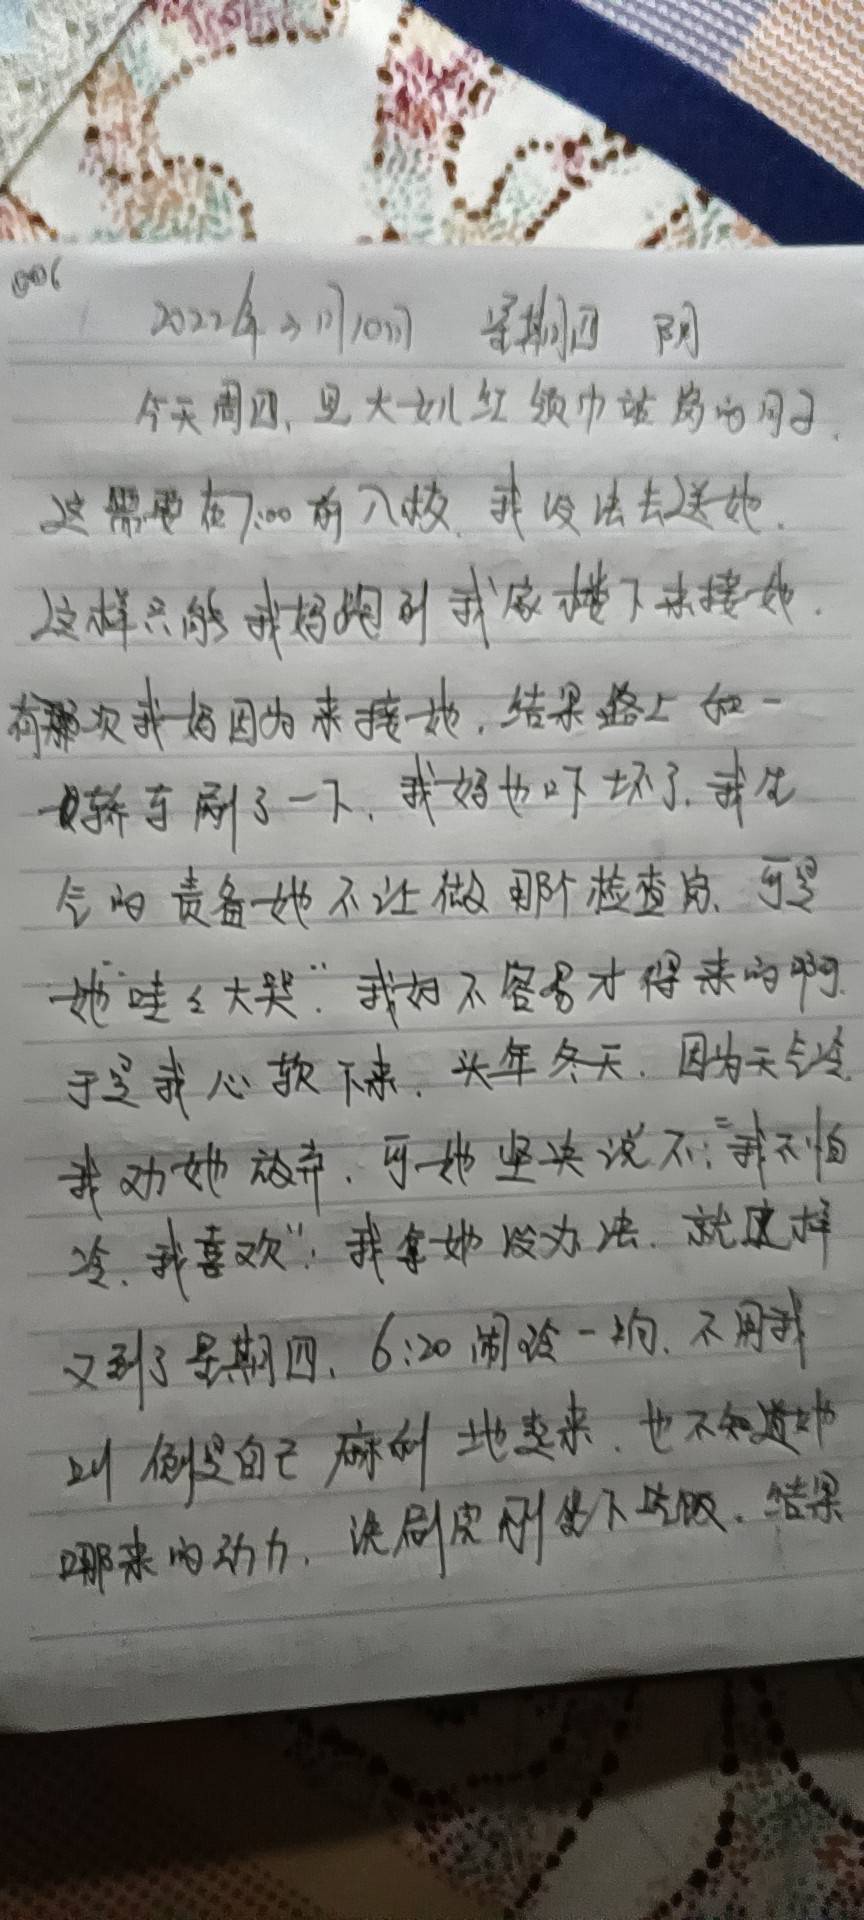 006
2022年3月10日 星期四 阴
今天周四，是大女儿红领巾站岗的日子，
这需要在7:00前入校，我没法去送她，
这样只能我妈跑到我家楼下来接她，
有那次我妈因为来接她，结果路上和一
轿车刷了一下，我妈也吓坏了，我生
气的责备她不让做那个检查岗，可是
她"哇哇大哭"：我好不容易才得来的啊，
于是我心软下来，头年冬天，因为天气冷，
我劝她放弃，可她坚决说不："我不怕
冷，我喜欢"，我拿她没办法，就这样
又到了星期四，6:20闹铃一响，不用我
叫倒是自己麻利地起来，也不知道她
哪来的动力，洗刷完刚坐下吃饭，结果